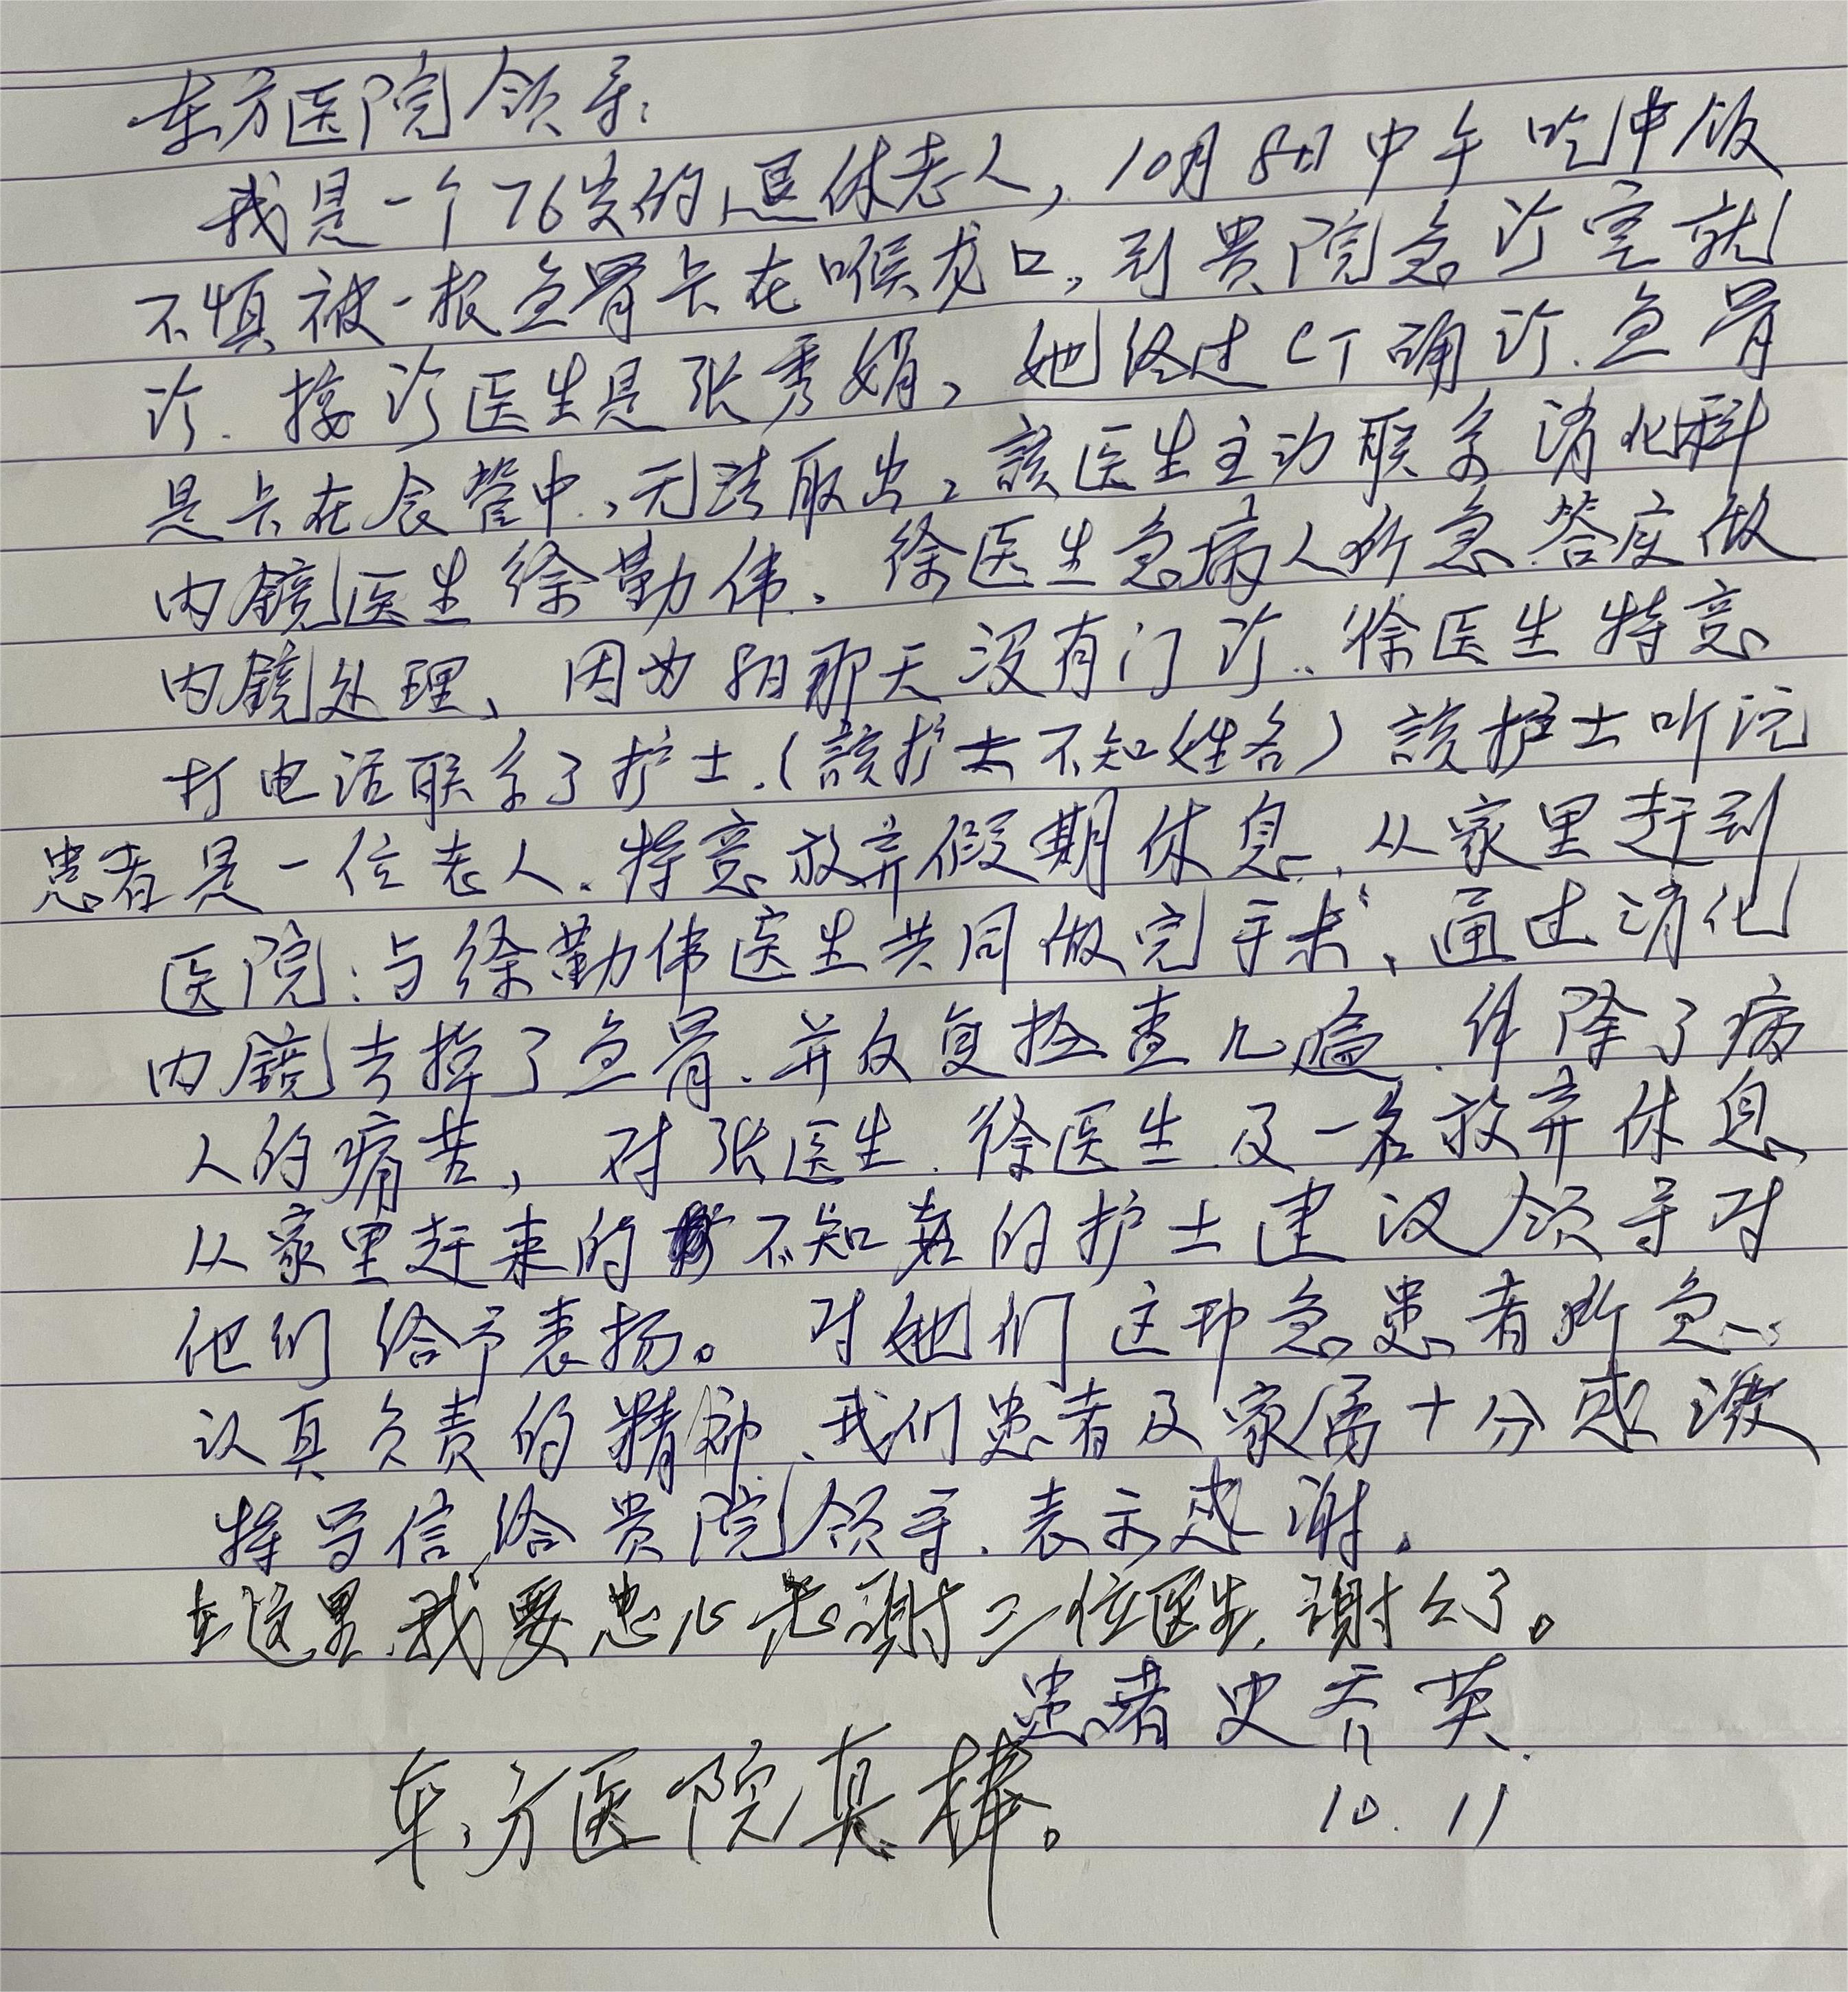 东方医院领导:
我是一个76岁的退休老人，10月8日中午吃中饭
不慎被一根鱼骨卡在喉咙口，到贵院急诊室就
诊.接诊医生是张秀娟，她经过CT确诊.鱼骨
是卡在食管中，无法取出，該医生主动联系消化科
内镜医生徐勤伟、徐医生急病人所急.答应做
内镜处理、因为8日那天没有门诊..徐医生特意
打电话联系了护士.(該护士不知姓名)該护士听说
患者是一位老人.特意放弃假期休息.从家里赶到
医院:与徐勤伟医生共同做完手术、通过消化
内镜去掉了鱼骨.并反复检查几遍.解除了病
人的痛苦，对张医生.徐医生.及一名放弃休息
从家里赶来的不知名的护士建议领导对
他们给予表扬。对她们这种急患者所急.
认真负责的精神、我们患者及家属十分感激
特写信给贵院领导.表示感谢.
在这里.我要忠心感謝三位医生,謝谢了。
患者史乔英.
10.11
东方医院真棒。